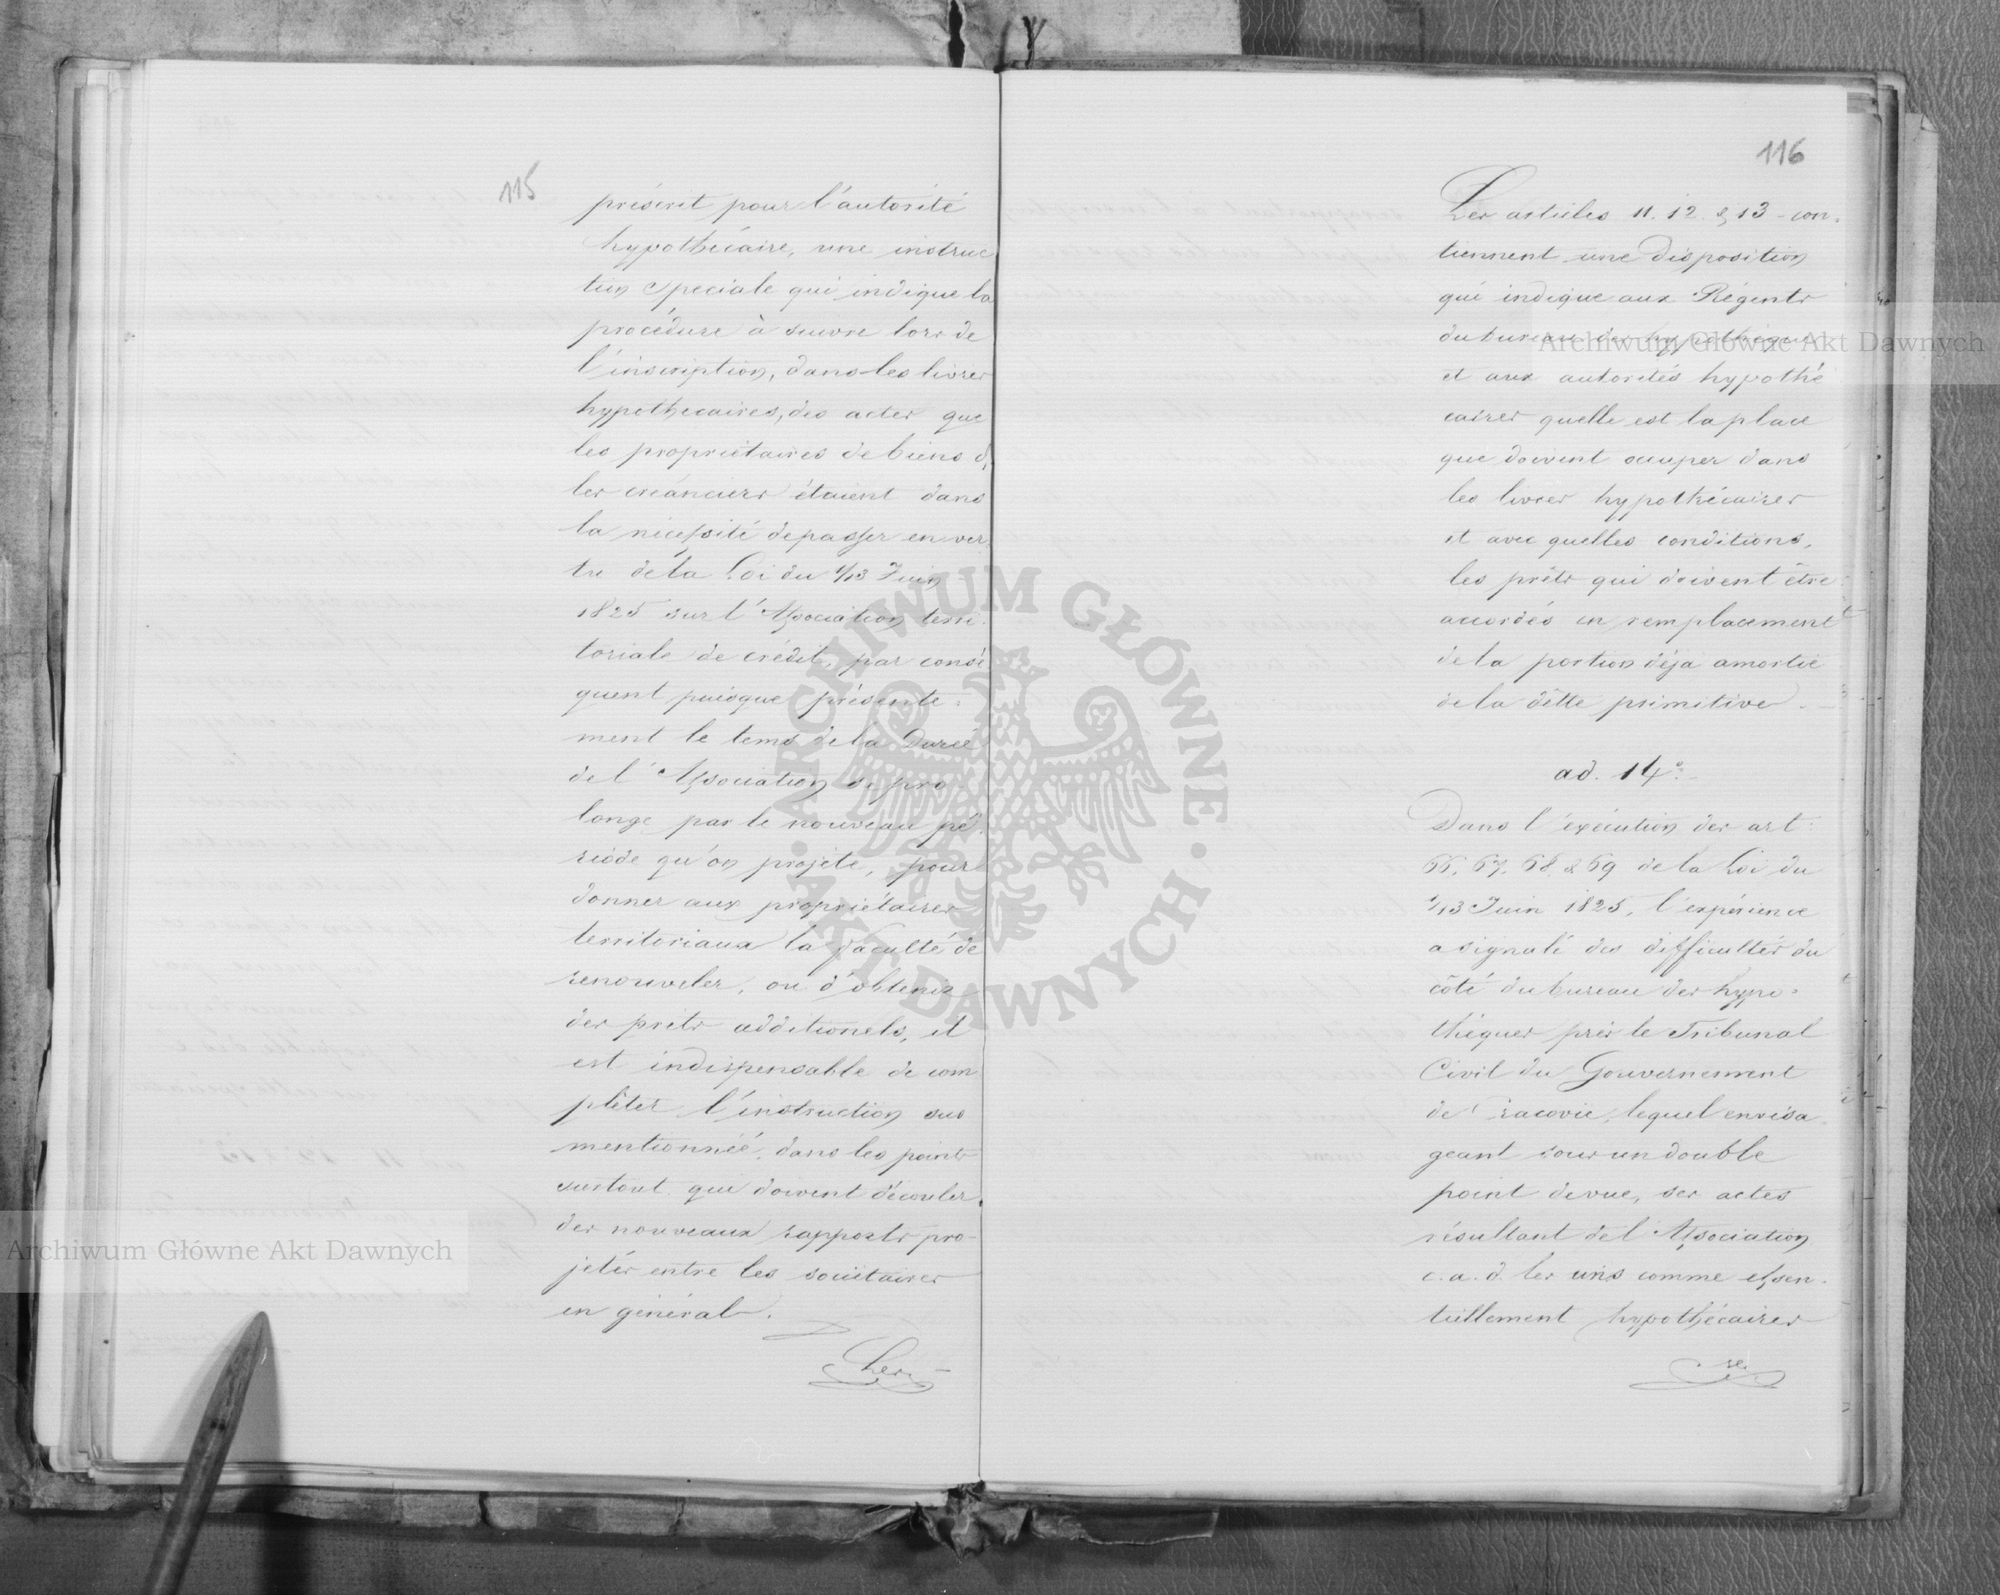 115
préscrit pour l'autorité
hypothécaire, une instruc
tion speciale qui indique la
procédure à suivre lors de
l'inscription, dans les livres
hypothecaires, des actes que
les propriétaires de biens &
les créanciers étaient dans
la nécessité de passer en ver
tu de la Loi du 1/13 Juin
1825 sur l'Association terri-
toriale de crédit, par consé
quent puisque présente=
ment le tems de la Durée
de l'Association se pro-
longe par le nouveau pé-
riode qu'on projète, pour
donner aux propriétaires
territoriaux la faculté de
renouveler, ou d'obtenir
des prêts additionels, il
est indispensable de com
plèter l'instruction sus
mentionnée, dans les points
surtout que doivent découler
des nouveaux rapports pro-
jetés entre les sociétaires
en général.
Les
116
Les articles 11. 12. & 13 - con-
tiennent une disposition
qui indique aux Régents
du bureau des hypothèques
et aux autorités hypothé
caires quelle est la place
que doivent occuper dans
les livres hypothécaires
et avec quelles conditions,
les prêts qui doivent être
accordés en remplacement
de la portion déja amortie
de la dêtte primitive.
ad. 14°
Dans l'exécution des art:
66, 67, 68, & 69 de la Loi du
1/13 Juin 1825, l'expérience
a signalé des difficultés du
côté du bureau des hypo=
thèques près le Tribunal
Civil du Gouvernement
de Cracovie, lequel envisa
geant sous un double
point de vue, ses actes
résultant de l'Association
c. a. d. les uns comme essen-
tiellement hypothécaires
re
Archiwum Główne Akt Dawnych
Archiwum Główne Akt Dawnych
ARCHIWUM GŁÓWNE · AKT DAWNYCH ·